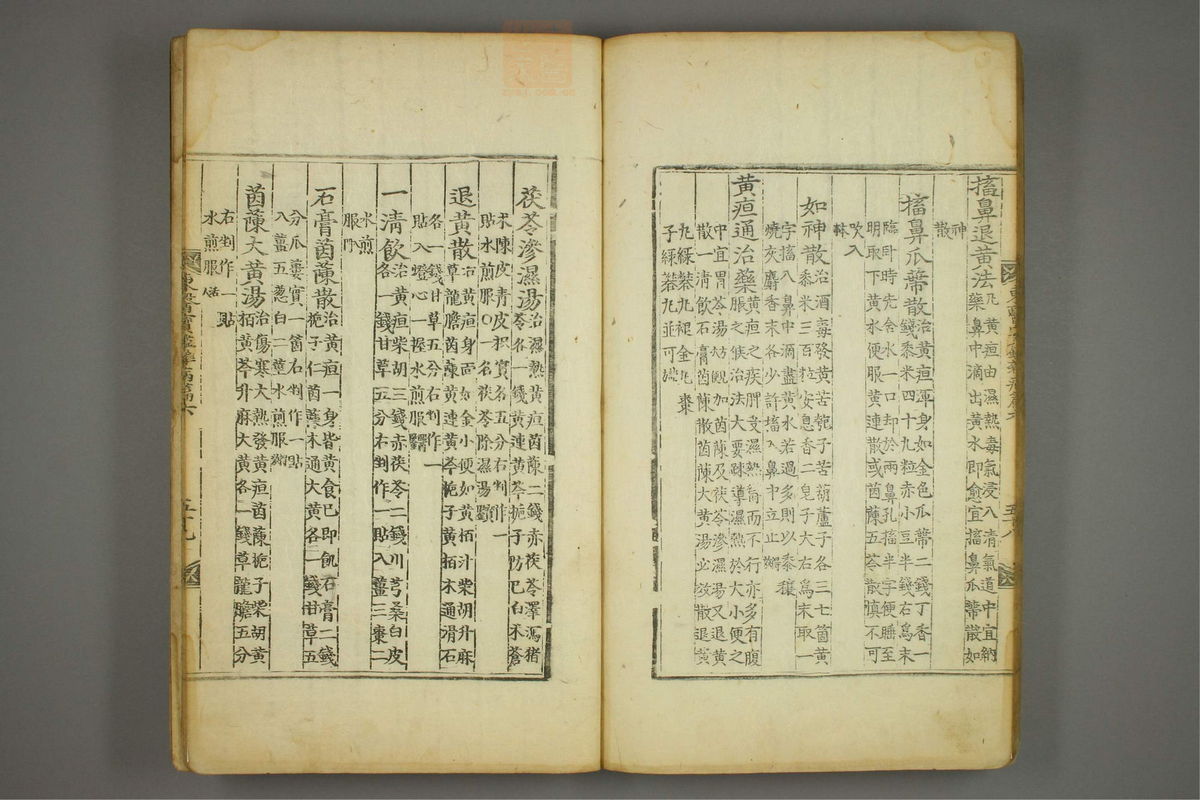 搐鼻退黃法凡黃疸由濕熱毒氣浸入清氣道中宜納
藥鼻中滴出黃水即愈宜搐鼻瓜蔕散如
神
散
搐鼻瓜蔕散治黃疸渾身如金色瓜蔕二錢丁香一
錢黍米四十九粒赤小豆半錢右爲末
臨卧時先含水一口却於兩鼻孔搐半字便睡至
明取下黃水便服黃連散或茵蔯五苓散愼不可
吹入
如神散治酒毒發黃苦瓠子苦葫蘆子各三七箇黃
黍米三百粒安息香二皂子大右爲末取一
字搐入鼻中滴盡黃水若過多則以黍穰
燒灰麝香末各少許搐入鼻中立止
黃疸通治藥黃疸之疾脾受濕熱而不行亦多有腹
脹之候治法大要踈導濕熱於大小便之
中宜胃苓湯加茵蔯及茯苓滲濕湯又退黃
散一淸飮石膏茵蔯散茵蔯大黃湯必效散退黃
丸綠礬丸褪金丸棗
子綠礬丸並可
茯苓滲濕湯治濕熱黃疸茵蔯二錢赤茯苓澤瀉猪
苓各一錢黃連黃芩梔子防己白朮蒼
朮陳皮靑皮枳實各五分右剉作一
貼水煎服○一名茯苓除濕湯
退黃散治黃疸身面如金小便如黃栢汁柴胡升麻
草龍膽茵蔯黃連黃芩梔子黃栢木通滑石
各一錢甘草五分右剉作一
貼入燈心一握水煎服
一淸飮治黃疸柴胡三錢赤茯苓二錢川芎桑白皮
各一錢甘草五分右剉作一貼入薑三棗二
水煎
服
石膏茵蔯散治黃疸一身皆黃食已即飢石膏二錢
梔子仁茵蔯木通大黃各一錢甘草五
分瓜蔞實一箇右剉作一貼
入薑五葱白二莖水煎服
茵蔯大黃湯治傷寒大熱發黃疸茵蔯梔子柴胡黃
栢黃芩升麻大黃各一錢草龍膽五分
右剉作一貼
水煎服